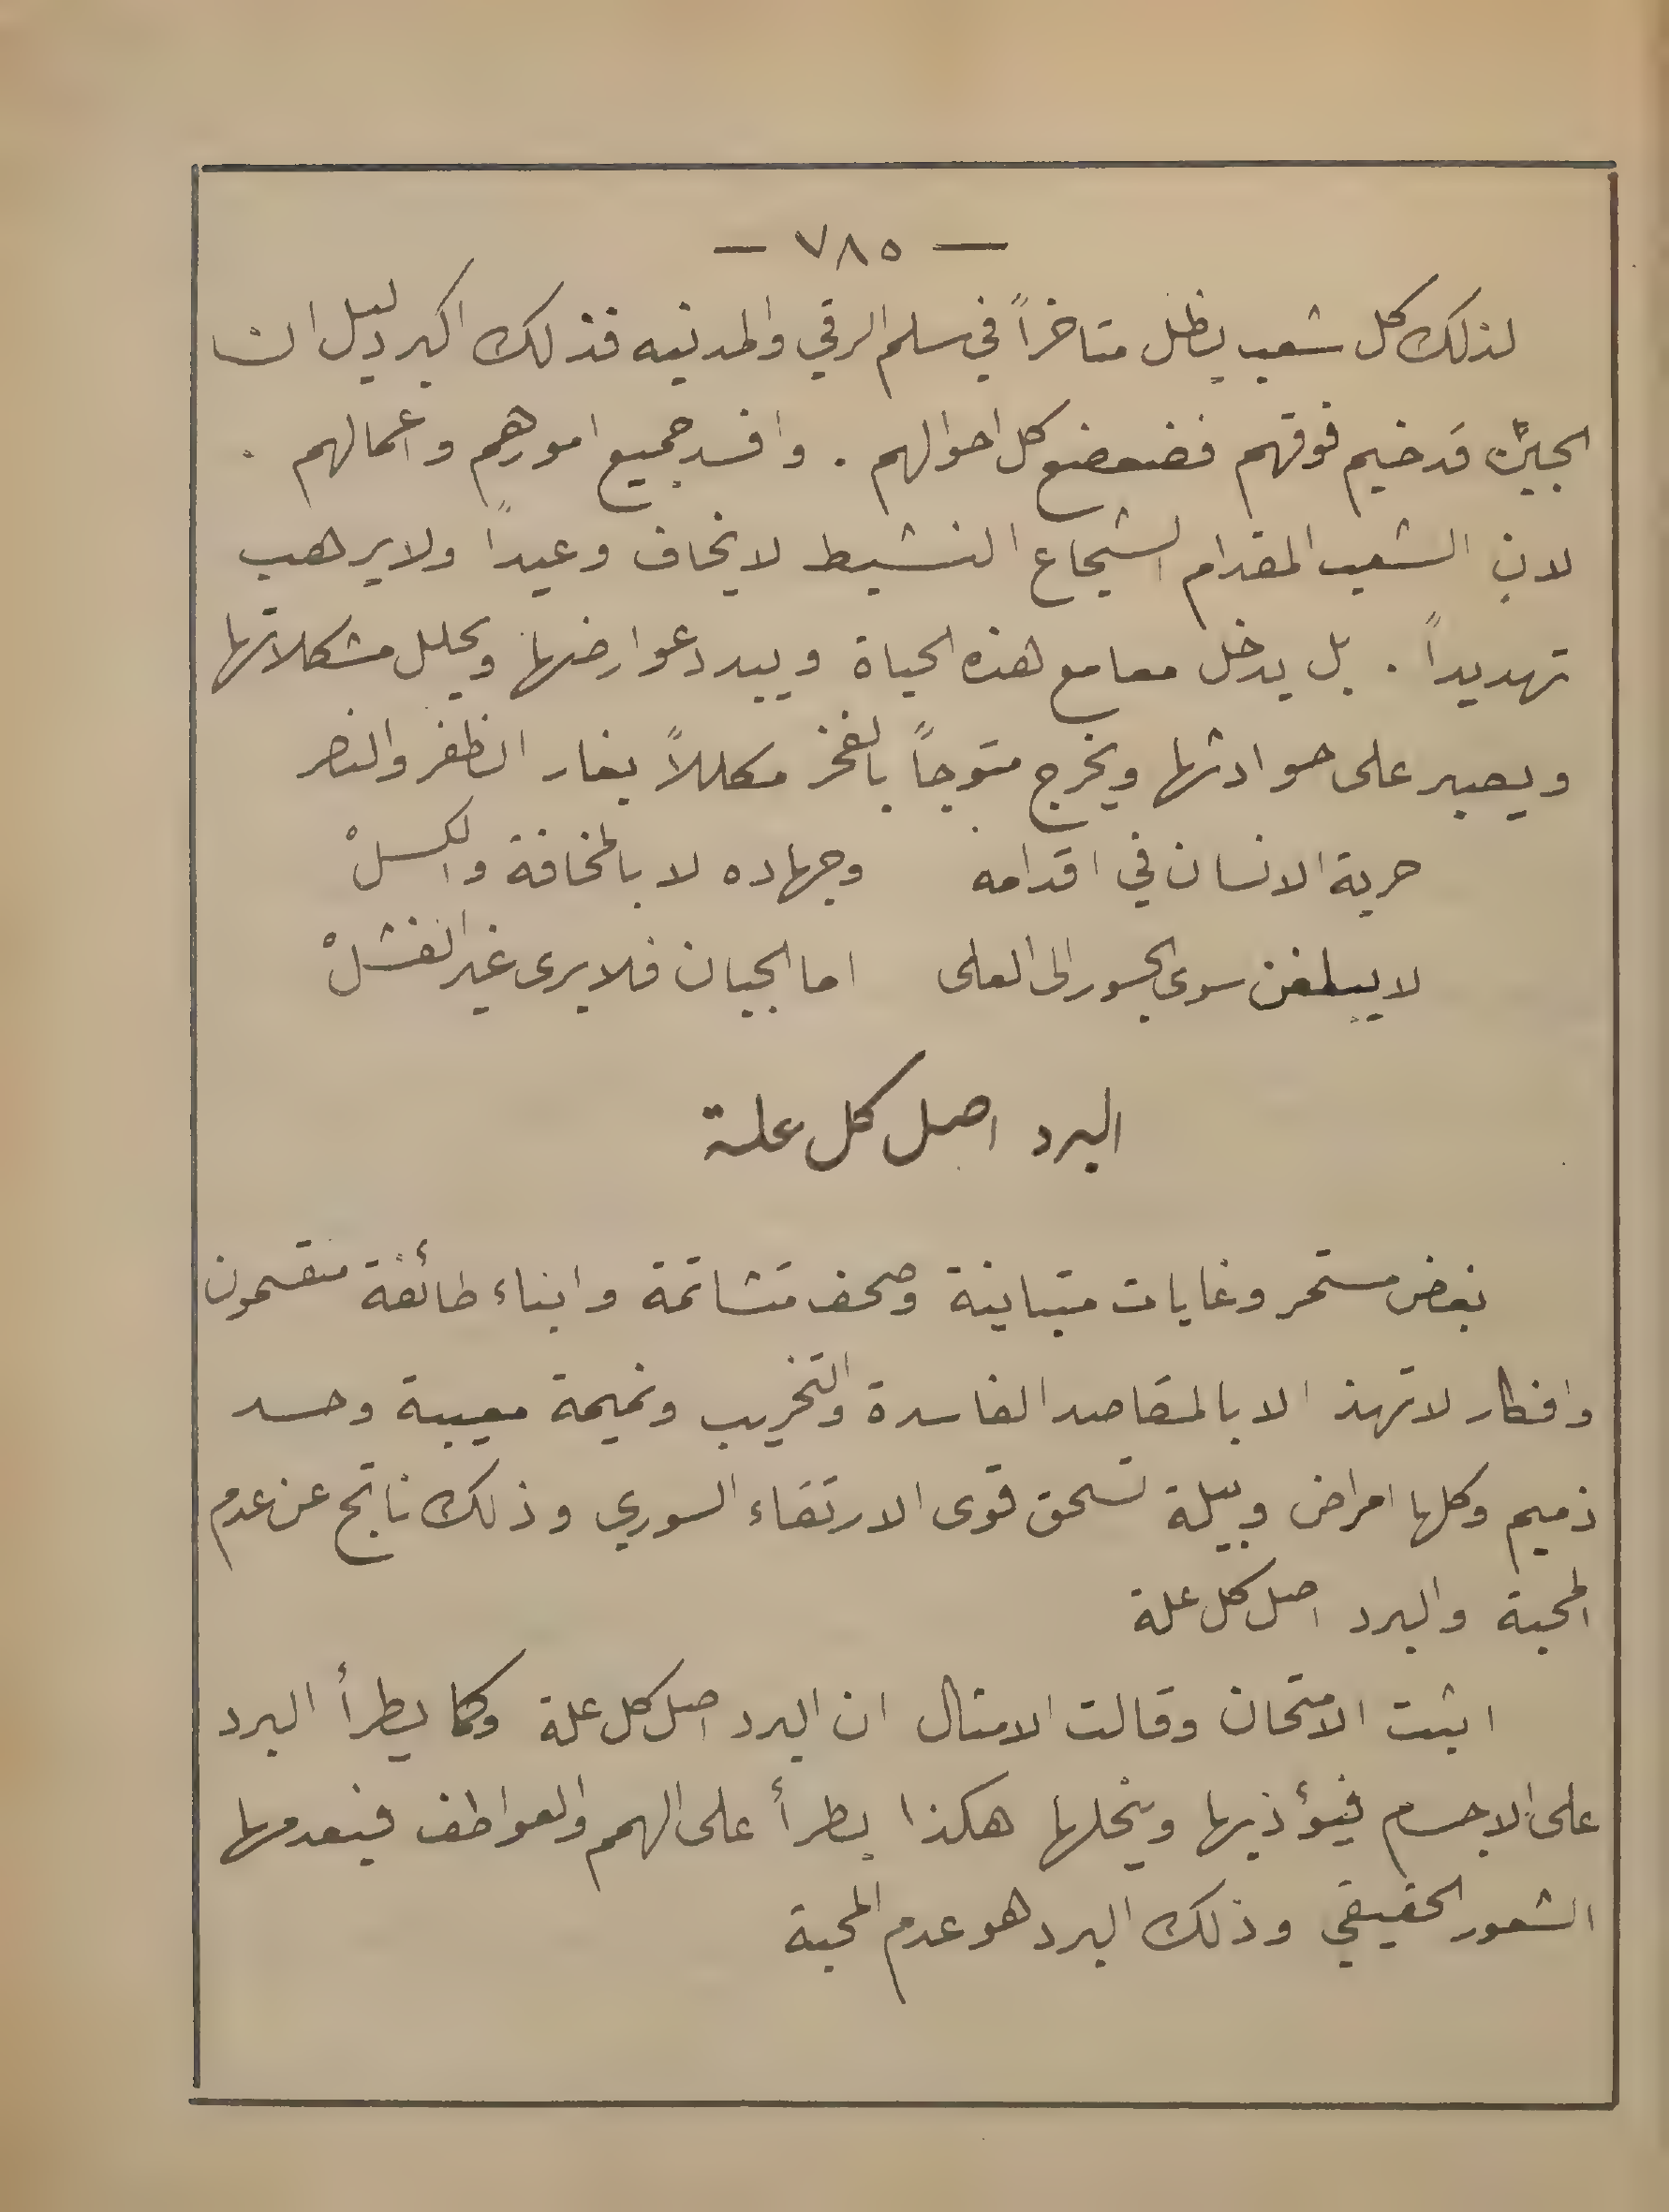 — ٧٨٥ —
لذلك كل شعب يظل متاخراً في سلم الرقي والمدنيه فذلك اكبر دليل ان
الجبن قد خيم فوقهم فضعضع كل احوالهم . وافسد جميع امورهم واعمالهم .
لان الشعب المقدام الشجاع النشيط لا يخاف وعيداً ولا يرهب
تهديداً . بل يدخل معامع هذه الحياة ويبدد عوارضها ويحلل مشكلاتها
ويصبر على حوادثها ويخرج متوجاً بالفخر مكللاً بغار الظفر والنصر
حرية الانسان في اقدامه وجهاده لا بالمخافة والكسلْ
لا يبلغن سوى الجسور الى العلى اما الجبان فلا يرى غير الفشلْ
البرد اصل كل علة
بغض مستحر وغايات متباينة وصحف متشاتمة وابناء طائفة منقسمون
وافكار لا تهذ الا بالمقاصد الفاسدة والتخريب ونميمة معيبة وحسد
ذميم وكلها امراض وبيلة تسحق قوى الارتقاء السوري وذلك ناتج عن عدم
المحبة والبرد اصل كل علة
اثبت الامتحان وقالت الامثال ان البرد اصل كل علة وكما يطرأ البرد
على الاجسام فيؤذيها وينحلها هكذا يطرأ على الهمم والعواطف فيعدمها
الشعور الحقيقي وذلك البرد هو عدم المحبة